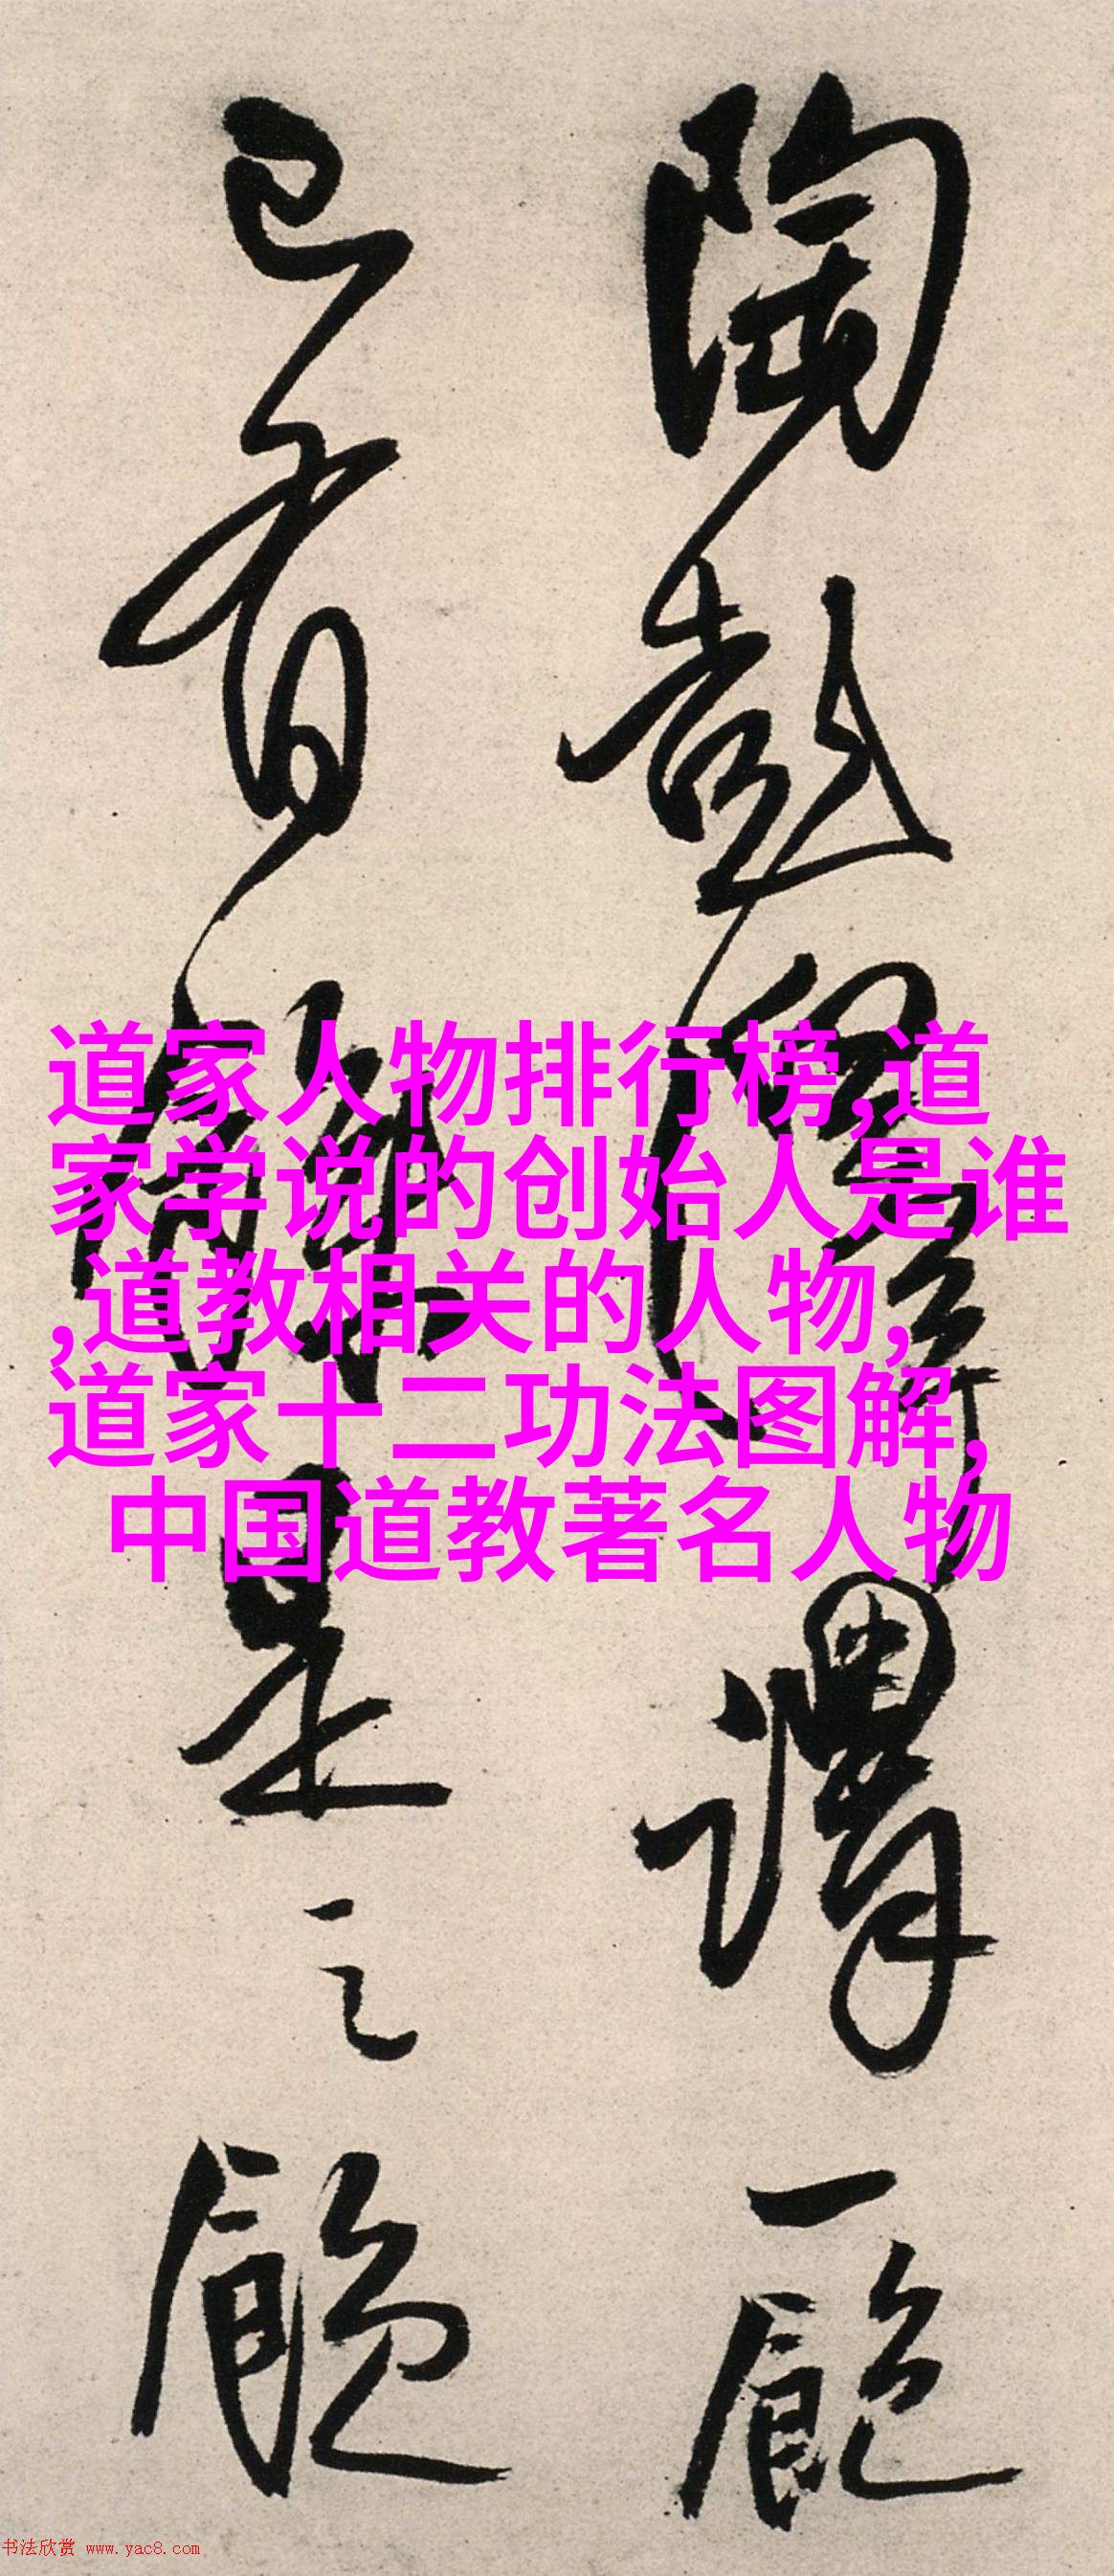 陶彭澤謂一飽
已有餘是之
道家人物排行榜,道
家学说的创始人是谁
,道教相关的人物,
道家十二功法图解,
中国道教著名人物
书法欣赏 www.yac8.com